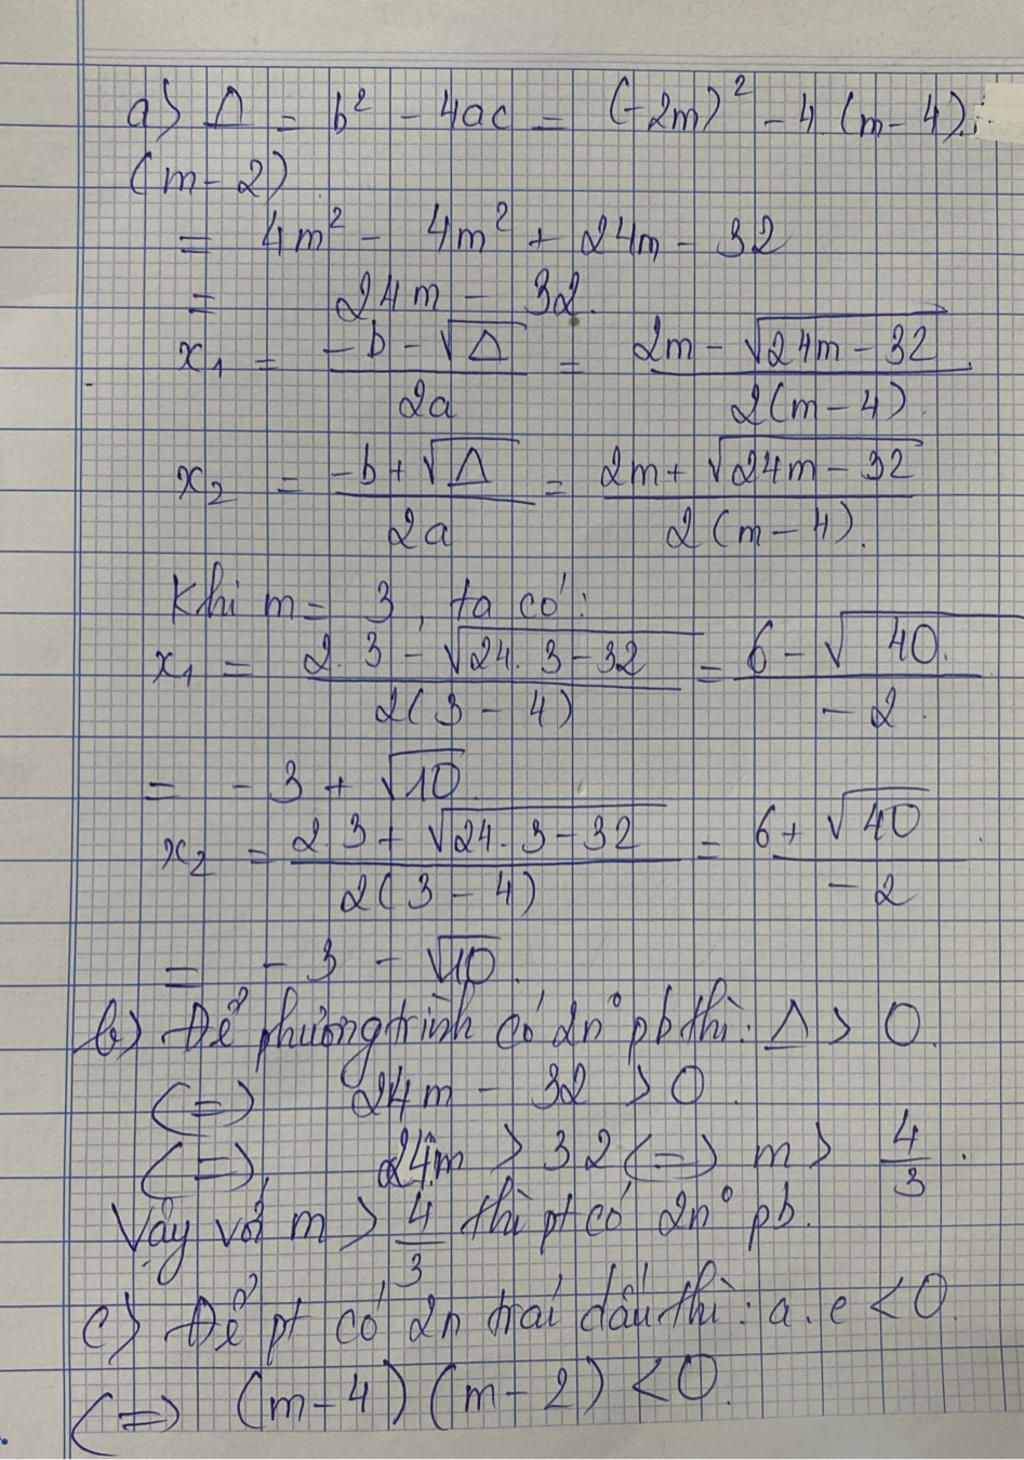 a) Δ = b² - 4ac = (-2m)² - 4 (m - 4).
(m - 2)
= 4m² - 4m² + 24m - 32
= 24m - 32.
x₁ = (-b - √Δ)/(2a) = (2m - √(24m - 32))/(2(m - 4)).
x₂ = (-b + √Δ)/(2a) = (2m + √(24m - 32))/(2(m - 4)).
Khi m = 3, ta có:
x₁ = (2.3 - √(24.3 - 32))/(2(3 - 4)) = (6 - √40.)/(-2).
= -3 + √10.
x₂ = (2.3 + √(24.3 - 32))/(2(3 - 4)) = (6 + √40)/(-2).
= -3 - √10.
b) Để phương trình có 2n° pb thì: Δ > 0.
(=) 24m - 32 > 0.
(=) 24m > 32 (=) m > 4/3.
Vậy với m > 4/3 thì pt có 2n° pb.
c) Để pt có 2n trái dấu thì: a.c < 0.
(=) (m - 4)(m - 2) < 0.